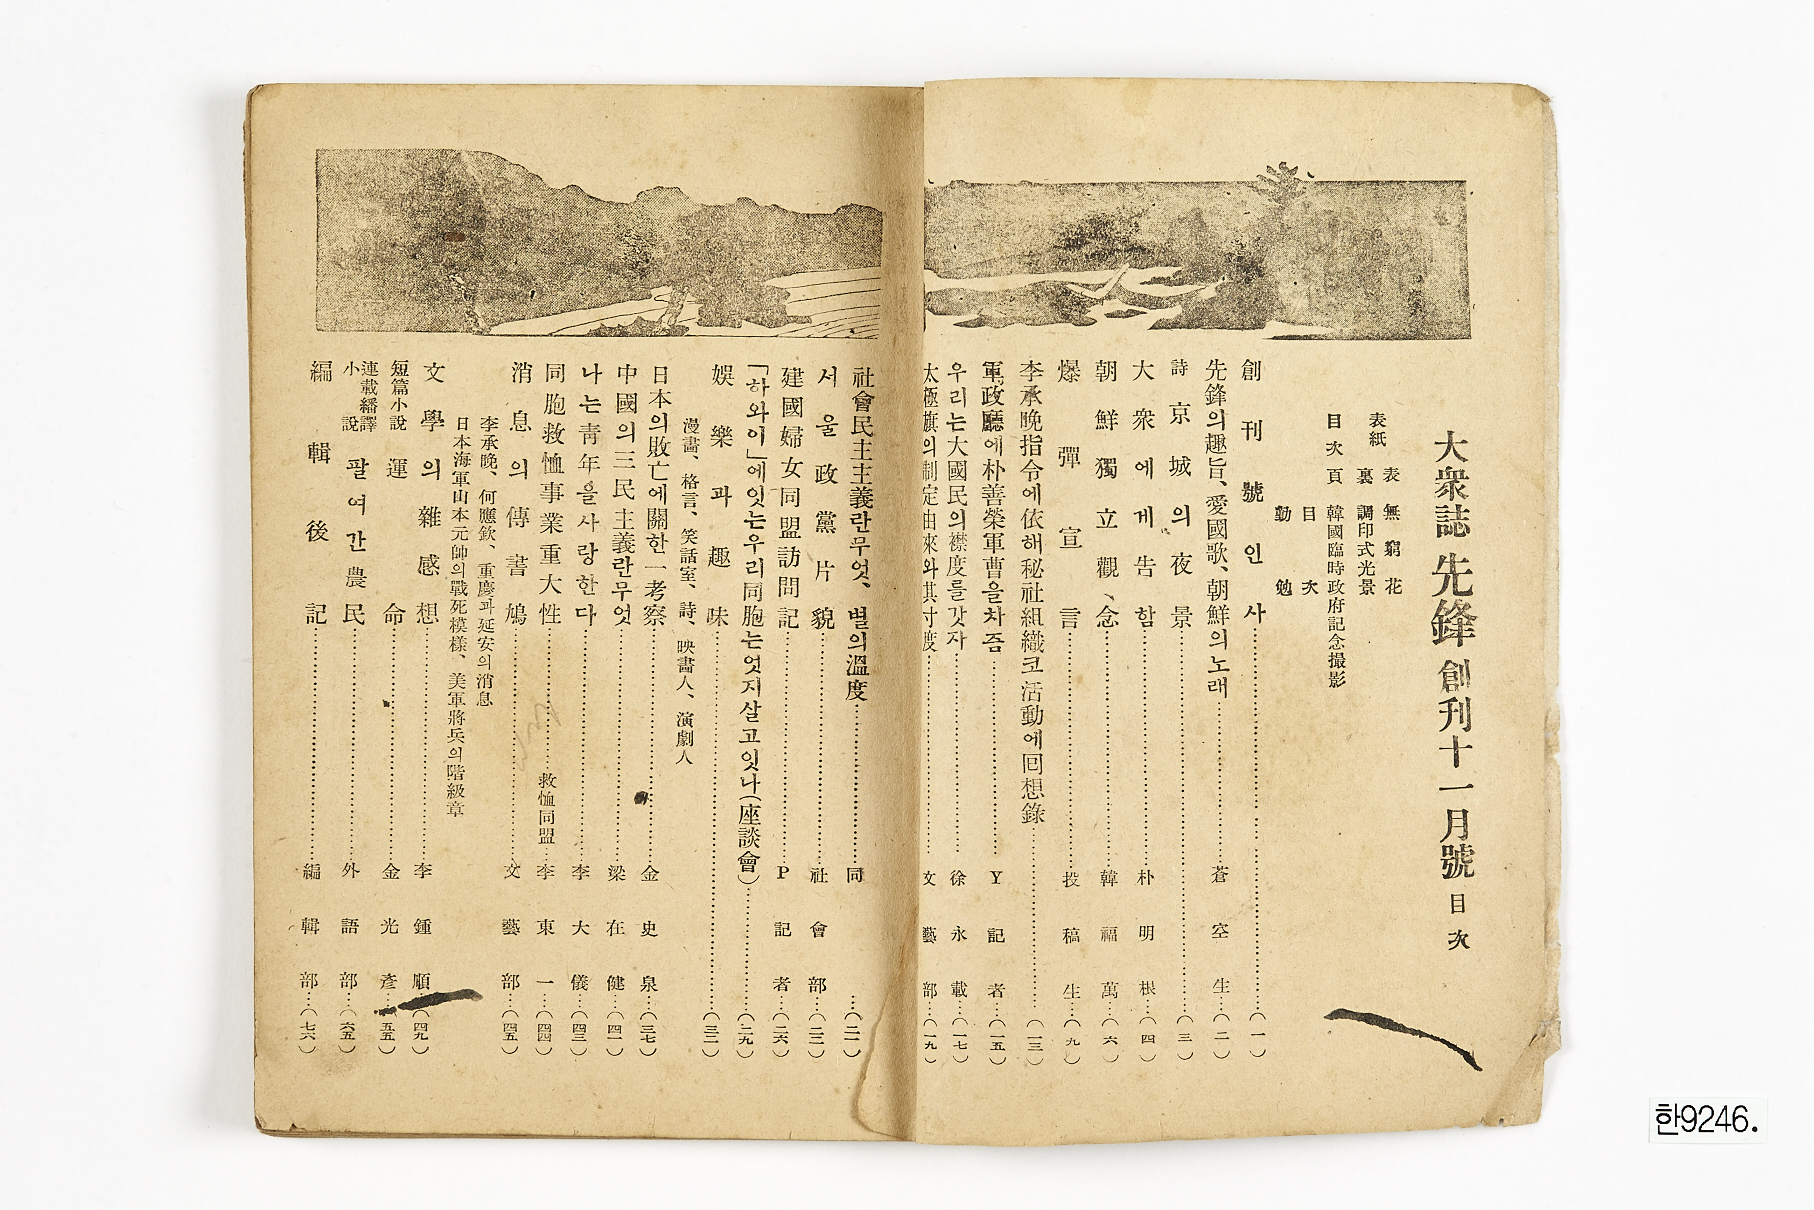 大衆誌 先鋒 創刊十一月號 目次
表紙 表 無窮花
裏 調印式光景
目次頁 韓國臨時政府記念撮影
目次
勳勉
創刊號인사……(一)
先鋒의趣旨、愛國歌、朝鮮의노래……蒼空生…(二)
詩 京城의夜景……(三)
大衆에게告함……朴明根…(四)
朝鮮獨立觀念……韓福萬…(六)
爆彈宣言……投稿生…(九)
李承晩指令에依해秘社組織코活動에回想錄……(一三)
軍政廳에朴善榮軍曹을차즘……Y記者…(一五)
우리는大國民의襟度를갓자……徐永載…(一七)
太極旗의制定由來와其寸度……文藝部…(一九)
社會民主主義란무엇、별의溫度……同…(二一)
서울政黨片貌……社會部…(二二)
建國婦女同盟訪問記……P記者…(二六)
「하와이」에잇는우리同胞는엇지살고잇나(座談會)……(二九)
娛樂과趣味……(三一)
漫畵、格言、笑話室、詩、映畵人、演劇人
日本의敗亡에關한一考察……金史泉…(三七)
中國의三民主義란무엇……梁在健…(四一)
나는靑年을사랑한다……李大儀…(四三)
同胞救恤事業重大性……救恤同盟…李東一…(四四)
消息의傳書鳩……文藝部…(四五)
李承晩、何應欽、重慶과延安의消息
日本海軍山本元帥의戰死模樣、美軍將兵의階級章
文學의雜感想……李鍾順…(四九)
短篇小說 運命……金光彥…(五五)
連載繙譯小說 팔여간農民……外語部…(六五)
編輯後記……編輯部…(七六)
한9246.